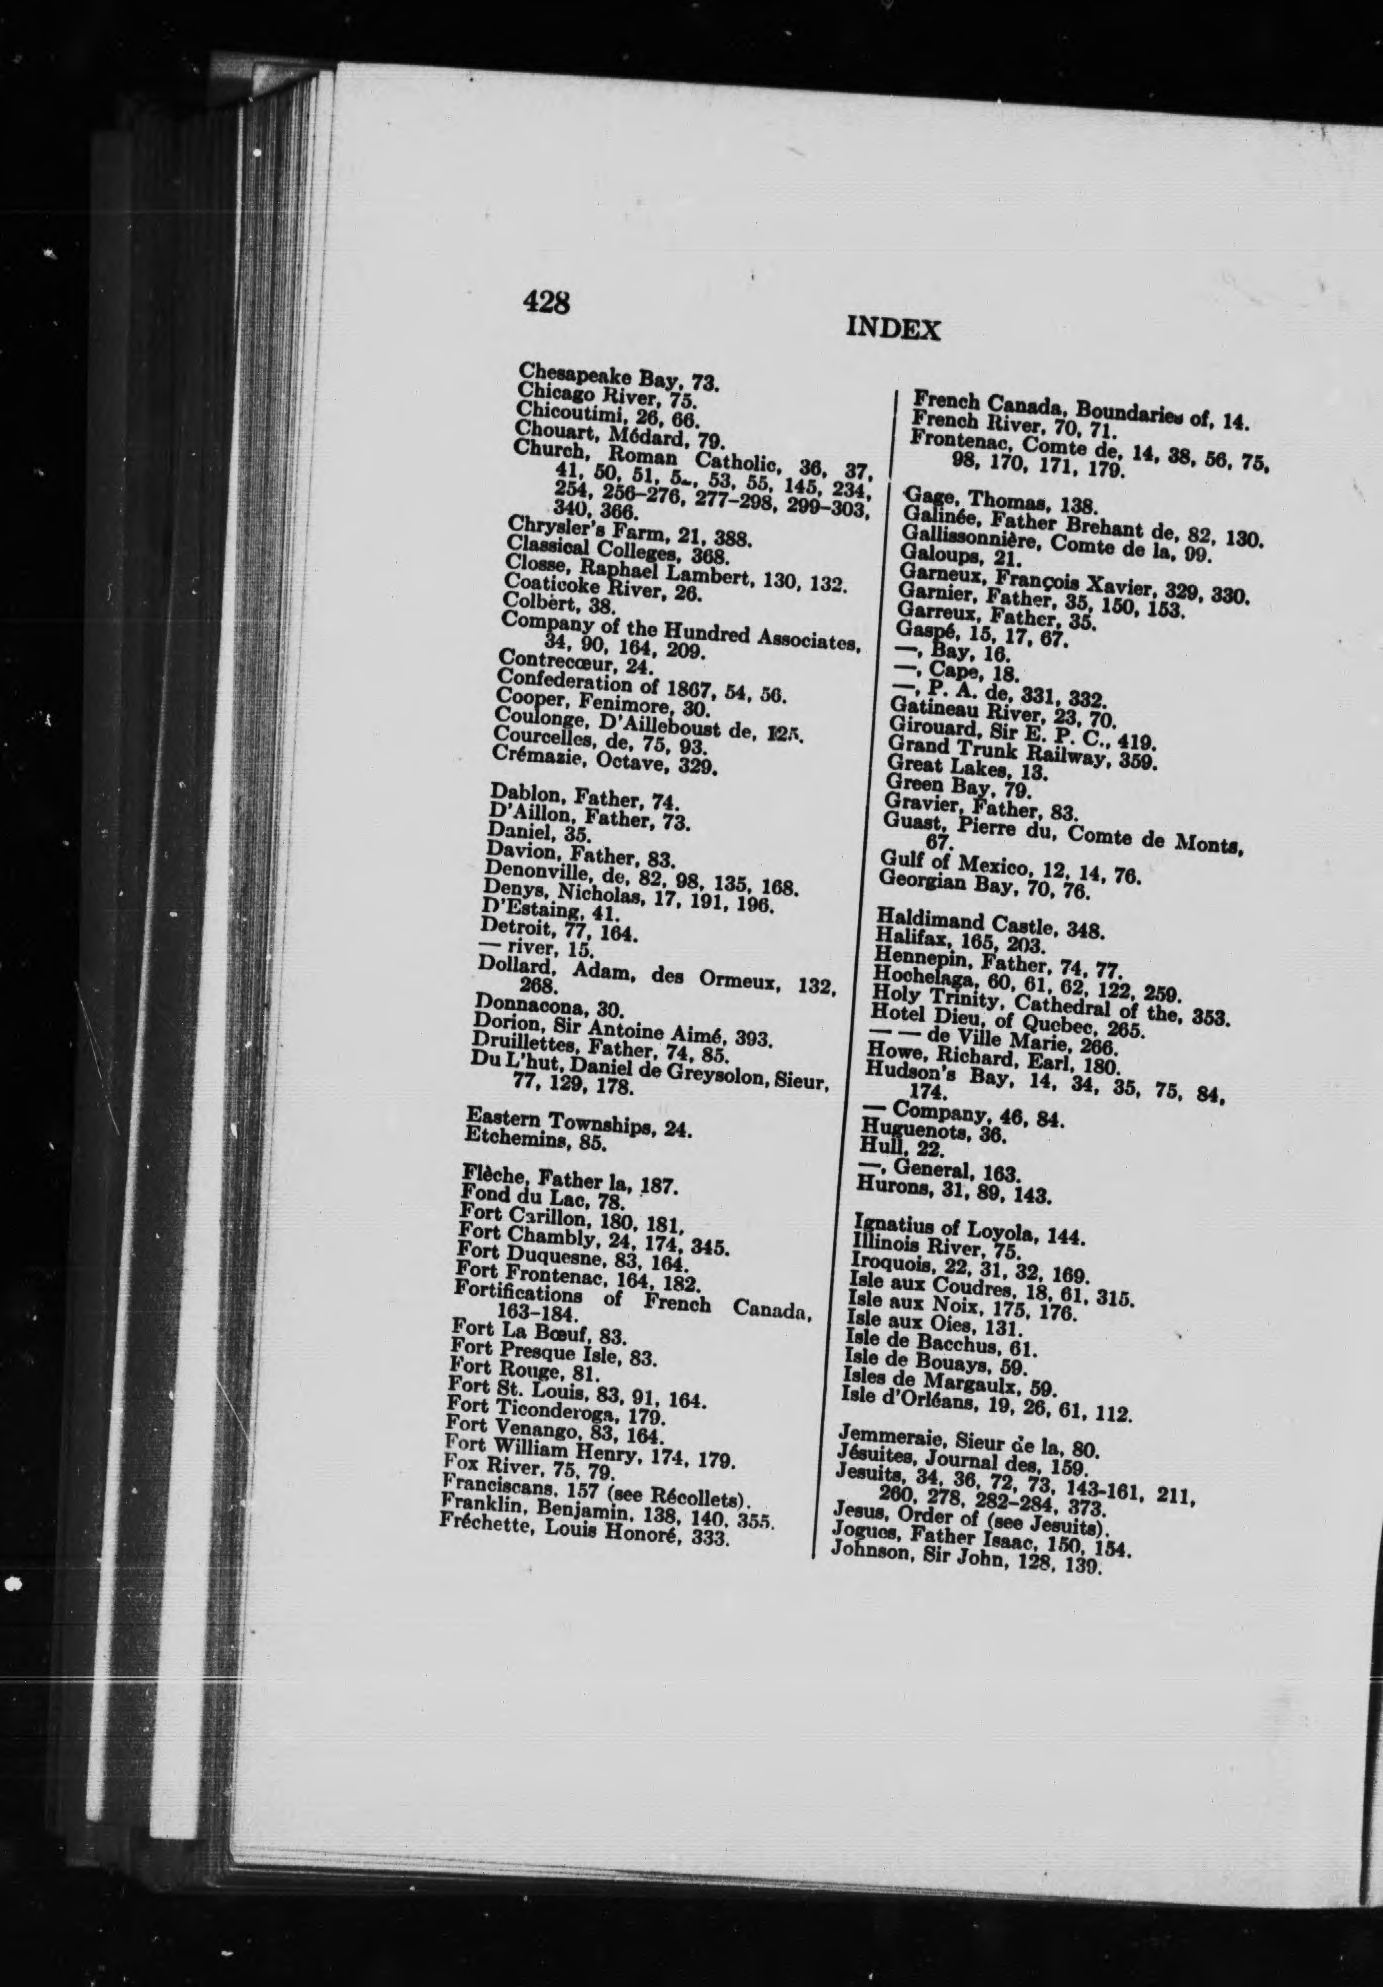 428
INDEX
Chesapeake Bay, 73.
Chicago River, 75.
Chicoutimi, 26, 66.
Chouart, Médard, 79.
Church, Roman Catholic, 36, 37,
41, 50, 51, 53, 55, 145, 234,
254, 256-276, 277-298, 299-303,
340, 366.
Chrysler's Farm, 21, 388.
Classical Colleges, 368.
Closse, Raphael Lambert, 130, 132.
Coaticoke River, 26.
Colbert, 38.
Company of the Hundred Associates,
34, 90, 164, 209.
Contrecœur, 24.
Confederation of 1867, 54, 56.
Cooper, Fenimore, 30.
Coulonge, D'Ailleboust de, 125.
Courcelles, de, 75, 93.
Crémazie, Octave, 329.
Dablon, Father, 74.
D'Aillon, Father, 73.
Daniel, 35.
Davion, Father, 83.
Denonville, de, 82, 98, 135, 168.
Denys, Nicholas, 17, 191, 196.
D'Estaing, 41.
Detroit, 77, 164.
— river, 15.
Dollard, Adam, des Ormeux, 132,
268.
Donnacona, 30.
Dorion, Sir Antoine Aimé, 393.
Druillettes, Father, 74, 85.
Du L'hut, Daniel de Greysolon, Sieur,
77, 129, 178.
Eastern Townships, 24.
Etchemins, 85.
Flèche, Father la, 187.
Fond du Lac, 78.
Fort Carillon, 180, 181,
Fort Chambly, 24, 174, 345.
Fort Duquesne, 83, 164.
Fort Frontenac, 164, 182.
Fortifications of French Canada,
163-184.
Fort La Bœuf, 83.
Fort Presque Isle, 83.
Fort Rouge, 81.
Fort St. Louis, 83, 91, 164.
Fort Ticonderoga, 179.
Fort Venango, 83, 164.
Fort William Henry, 174, 179.
Fox River, 75, 79.
Franciscans, 157 (see Récollets).
Franklin, Benjamin, 138, 140, 355.
Fréchette, Louis Honoré, 333.
French Canada, Boundaries of, 14.
French River, 70, 71.
Frontenac, Comte de, 14, 38, 56, 75,
98, 170, 171, 179.
Gage, Thomas, 138.
Galinée, Father Brehant de, 82, 130.
Gallissonnière, Comte de la, 99.
Galoups, 21.
Garneux, François Xavier, 329, 330.
Garnier, Father, 35, 150, 153.
Garreux, Father, 35.
Gaspé, 15, 17, 67.
—, Bay, 16.
—, Cape, 18.
—, P. A. de, 331, 332.
Gatineau River, 23, 70.
Girouard, Sir E. P. C., 419.
Grand Trunk Railway, 359.
Great Lakes, 13.
Green Bay, 79.
Gravier, Father, 83.
Guast, Pierre du, Comte de Monts,
67.
Gulf of Mexico, 12, 14, 76.
Georgian Bay, 70, 76.
Haldimand Castle, 348.
Halifax, 165, 203.
Hennepin, Father, 74, 77.
Hochelaga, 60, 61, 62, 122, 259.
Holy Trinity, Cathedral of the, 353.
Hotel Dieu, of Quebec, 265.
— — de Ville Marie, 266.
Howe, Richard, Earl, 180.
Hudson's Bay, 14, 34, 35, 75, 84,
174.
— Company, 46, 84.
Huguenots, 36.
Hull, 22.
—, General, 163.
Hurons, 31, 89, 143.
Ignatius of Loyola, 144.
Illinois River, 75.
Iroquois, 22, 31, 32, 169.
Isle aux Coudres, 18, 61, 315.
Isle aux Noix, 175, 176.
Isle aux Oies, 131.
Isle de Bacchus, 61.
Isle de Bouays, 59.
Isles de Margaulx, 59.
Isle d'Orléans, 19, 26, 61, 112.
Jemmeraie, Sieur de la, 80.
Jésuites, Journal des, 159.
Jesuits, 34, 36, 72, 73, 143-161, 211,
260, 278, 282-284, 373.
Jesus, Order of (see Jesuits).
Jogues, Father Isaac, 150, 154.
Johnson, Sir John, 128, 139.